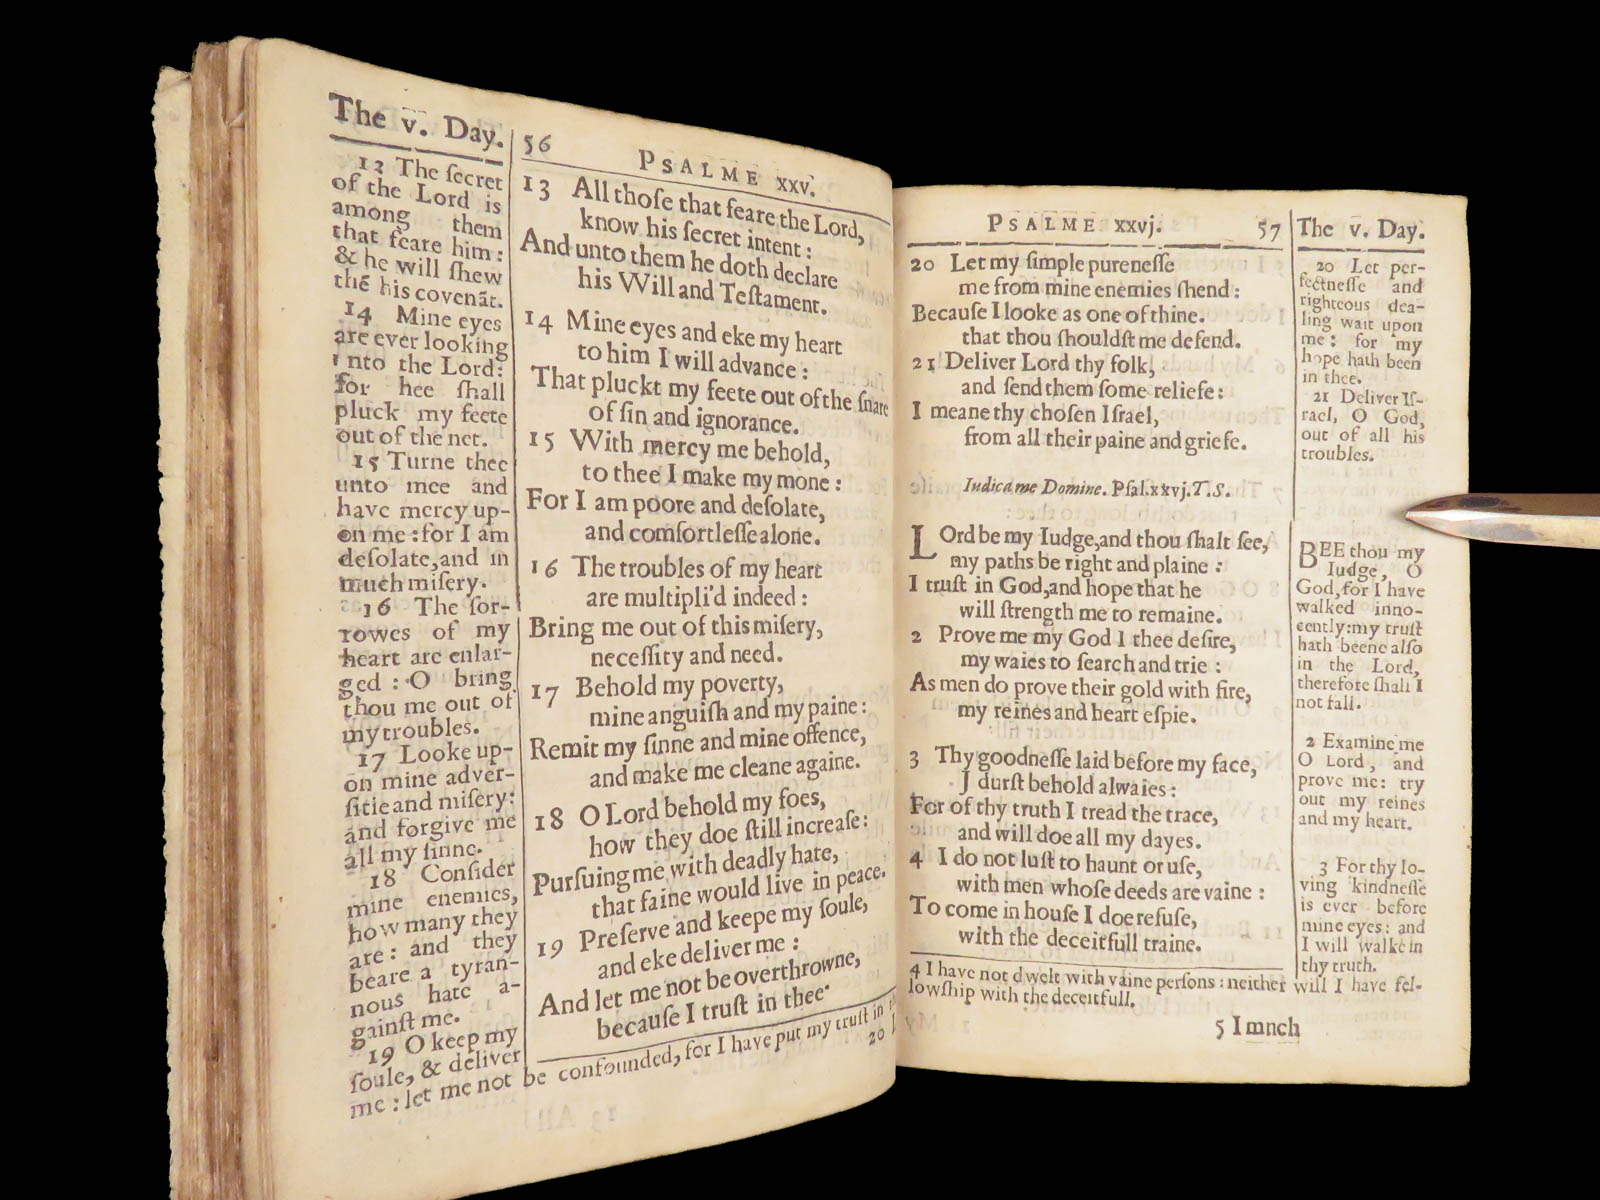 The v. Day.
12 The ſecret
of the Lord is
among them
that feare him:
& he will ſhew
thē his covenāt.
14 Mine eyes
are ever looking
unto the Lord:
for hee ſhall
pluck my feete
out of the net.
15 Turne thee
unto mee and
have mercy up-
on me : for I am
deſolate, and in
much miſery.
16 The ſor-
rowes of my
heart are enlar-
ged : O bring
thou me out of
my troubles.
17 Looke up-
on mine adver-
ſitie and miſery:
and forgive me
all my ſinne.
18 Conſider
mine enemies,
how many they
are : and they
beare a tyran-
nous hate a-
gainſt me.
19 O keep my
ſoule, & deliver
me : let me not be confounded, for I have put my truſt in
56
PSALME xxv.
13 All thoſe that feare the Lord,
know his ſecret intent :
And unto them he doth declare
his Will and Teſtament.
14 Mine eyes and eke my heart
to him I will advance :
That pluckt my feete out of the ſnare
of ſin and ignorance.
15 With mercy me behold,
to thee I make my mone :
For I am poore and deſolate,
and comfortleſſe alone.
16 The troubles of my heart
are multipli'd indeed :
Bring me out of this miſery,
neceſſity and need.
17 Behold my poverty,
mine anguiſh and my paine :
Remit my ſinne and mine offence,
and make me cleane againe.
18 O Lord behold my foes,
how they doe ſtill increaſe :
Purſuing me with deadly hate,
that faine would live in peace.
19 Preſerve and keepe my ſoule,
and eke deliver me :
And let me not be overthrowne,
becauſe I truſt in thee.
20
PSALME xxvj.
57
20 Let my ſimple pureneſſe
me from mine enemies ſhend :
Becauſe I looke as one of thine.
that thou ſhouldſt me defend.
21 Deliver Lord thy folk,
and ſend them ſome reliefe :
I meane thy choſen Iſrael,
from all their paine and griefe.
Iudica me Domine. Pſal.xxvj.T.S.
LOrd be my Iudge, and thou ſhalt ſee,
my paths be right and plaine :
I truſt in God, and hope that he
will ſtrength me to remaine.
2 Prove me my God I thee deſire,
my waies to ſearch and trie :
As men do prove their gold with fire,
my reines and heart eſpie.
3 Thy goodneſſe laid before my face,
I durſt behold alwaies :
For of thy truth I tread the trace,
and will doe all my dayes.
4 I do not luſt to haunt or uſe,
with men whoſe deeds are vaine :
To come in houſe I doe refuſe,
with the deceitfull traine.
The v. Day.
20 Let per-
fectneſſe and
righteous dea-
ling wait upon
me : for my
hope hath been
in thee.
21 Deliver Iſ-
rael, O God,
out of all his
troubles.
BEE thou my
Iudge, O
God, for I have
walked inno-
cently: my truſt
hath beene alſo
in the Lord,
therefore ſhall I
not fall.
2 Examine me
O Lord, and
prove me: try
out my reines
and my heart.
3 For thy lo-
ving kindneſſe
is ever before
mine eyes: and
I will walke in
thy truth.
4 I have not dwelt with vaine perſons : neither will I have fel-
lowſhip with the deceitfull.
5 I mnch